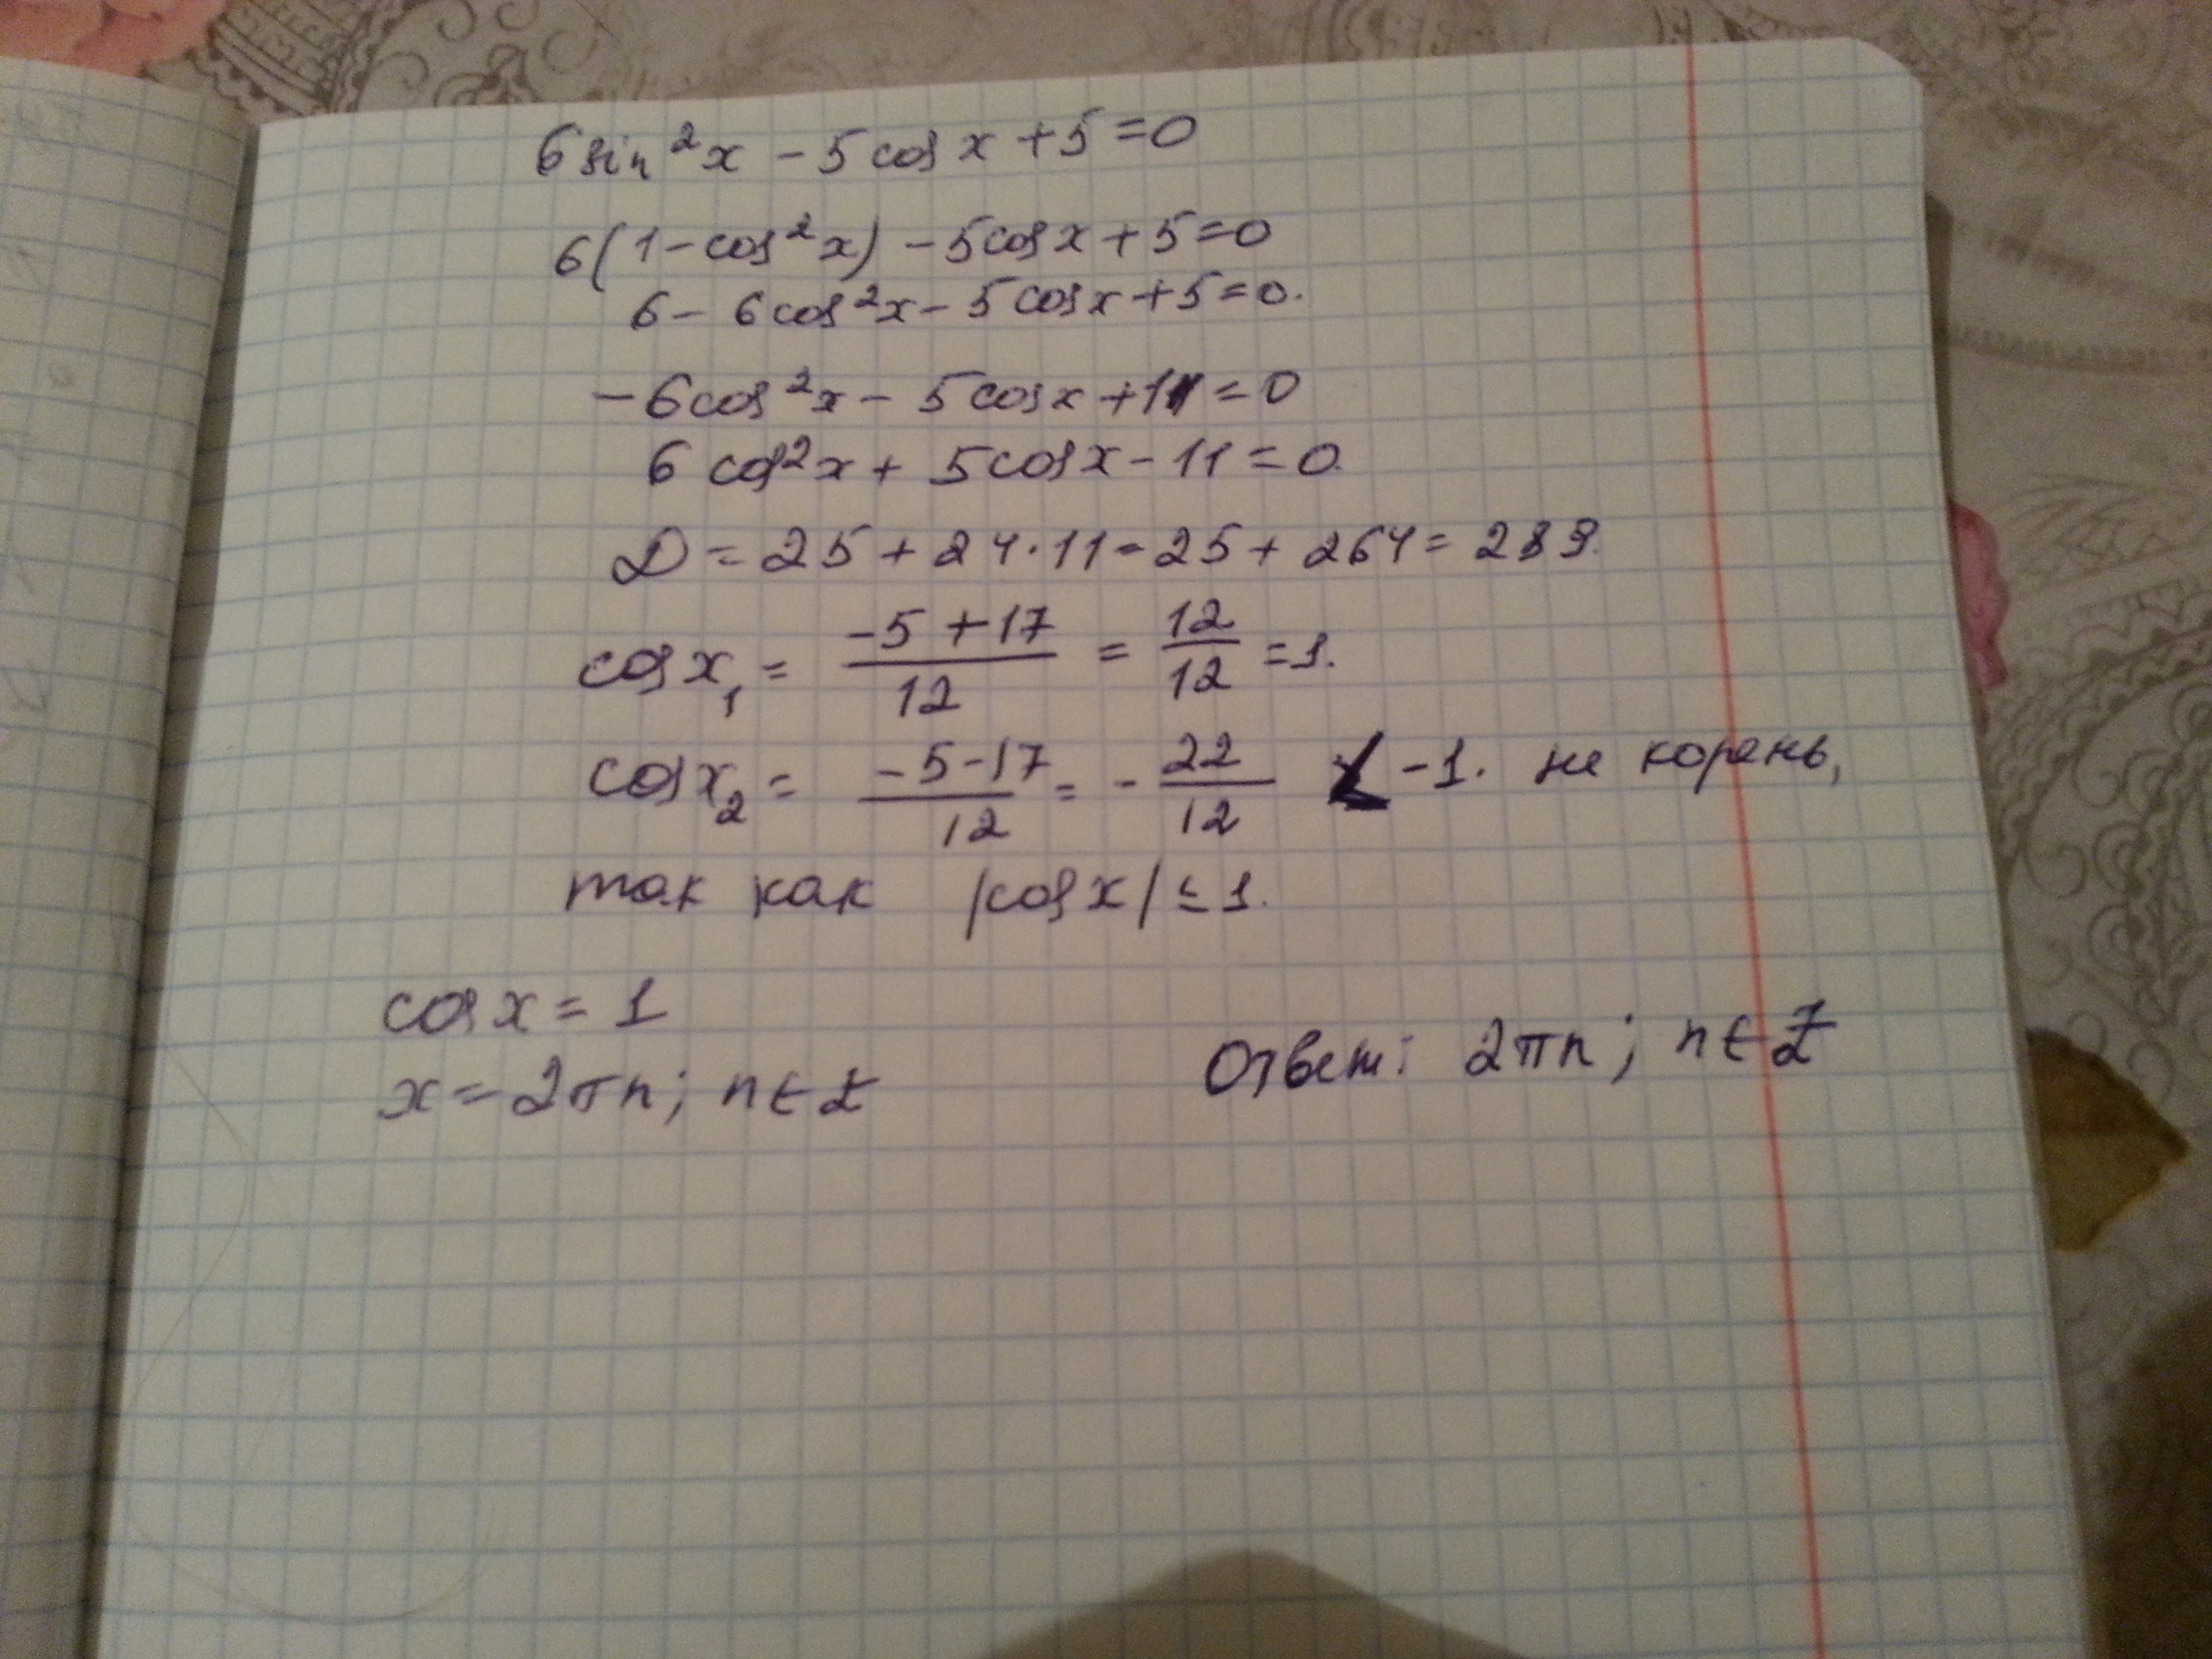 6 sin²x - 5 cos x + 5 = 0
6(1 - cos²x) - 5 cos x + 5 = 0
6 - 6 cos²x - 5 cos x + 5 = 0.
-6 cos²x - 5 cos x + 11 = 0
6 cos²x + 5 cos x - 11 = 0.
D = 25 + 24·11 = 25 + 264 = 289.
cos x₁ = (-5 + 17)/12 = 12/12 = 1.
cos x₂ = (-5 - 17)/12 = - 22/12 < -1. не корень,
так как |cos x| ≤ 1.
cos x = 1
x = 2πn; n ∈ Z
Ответ: 2πn; n ∈ Z